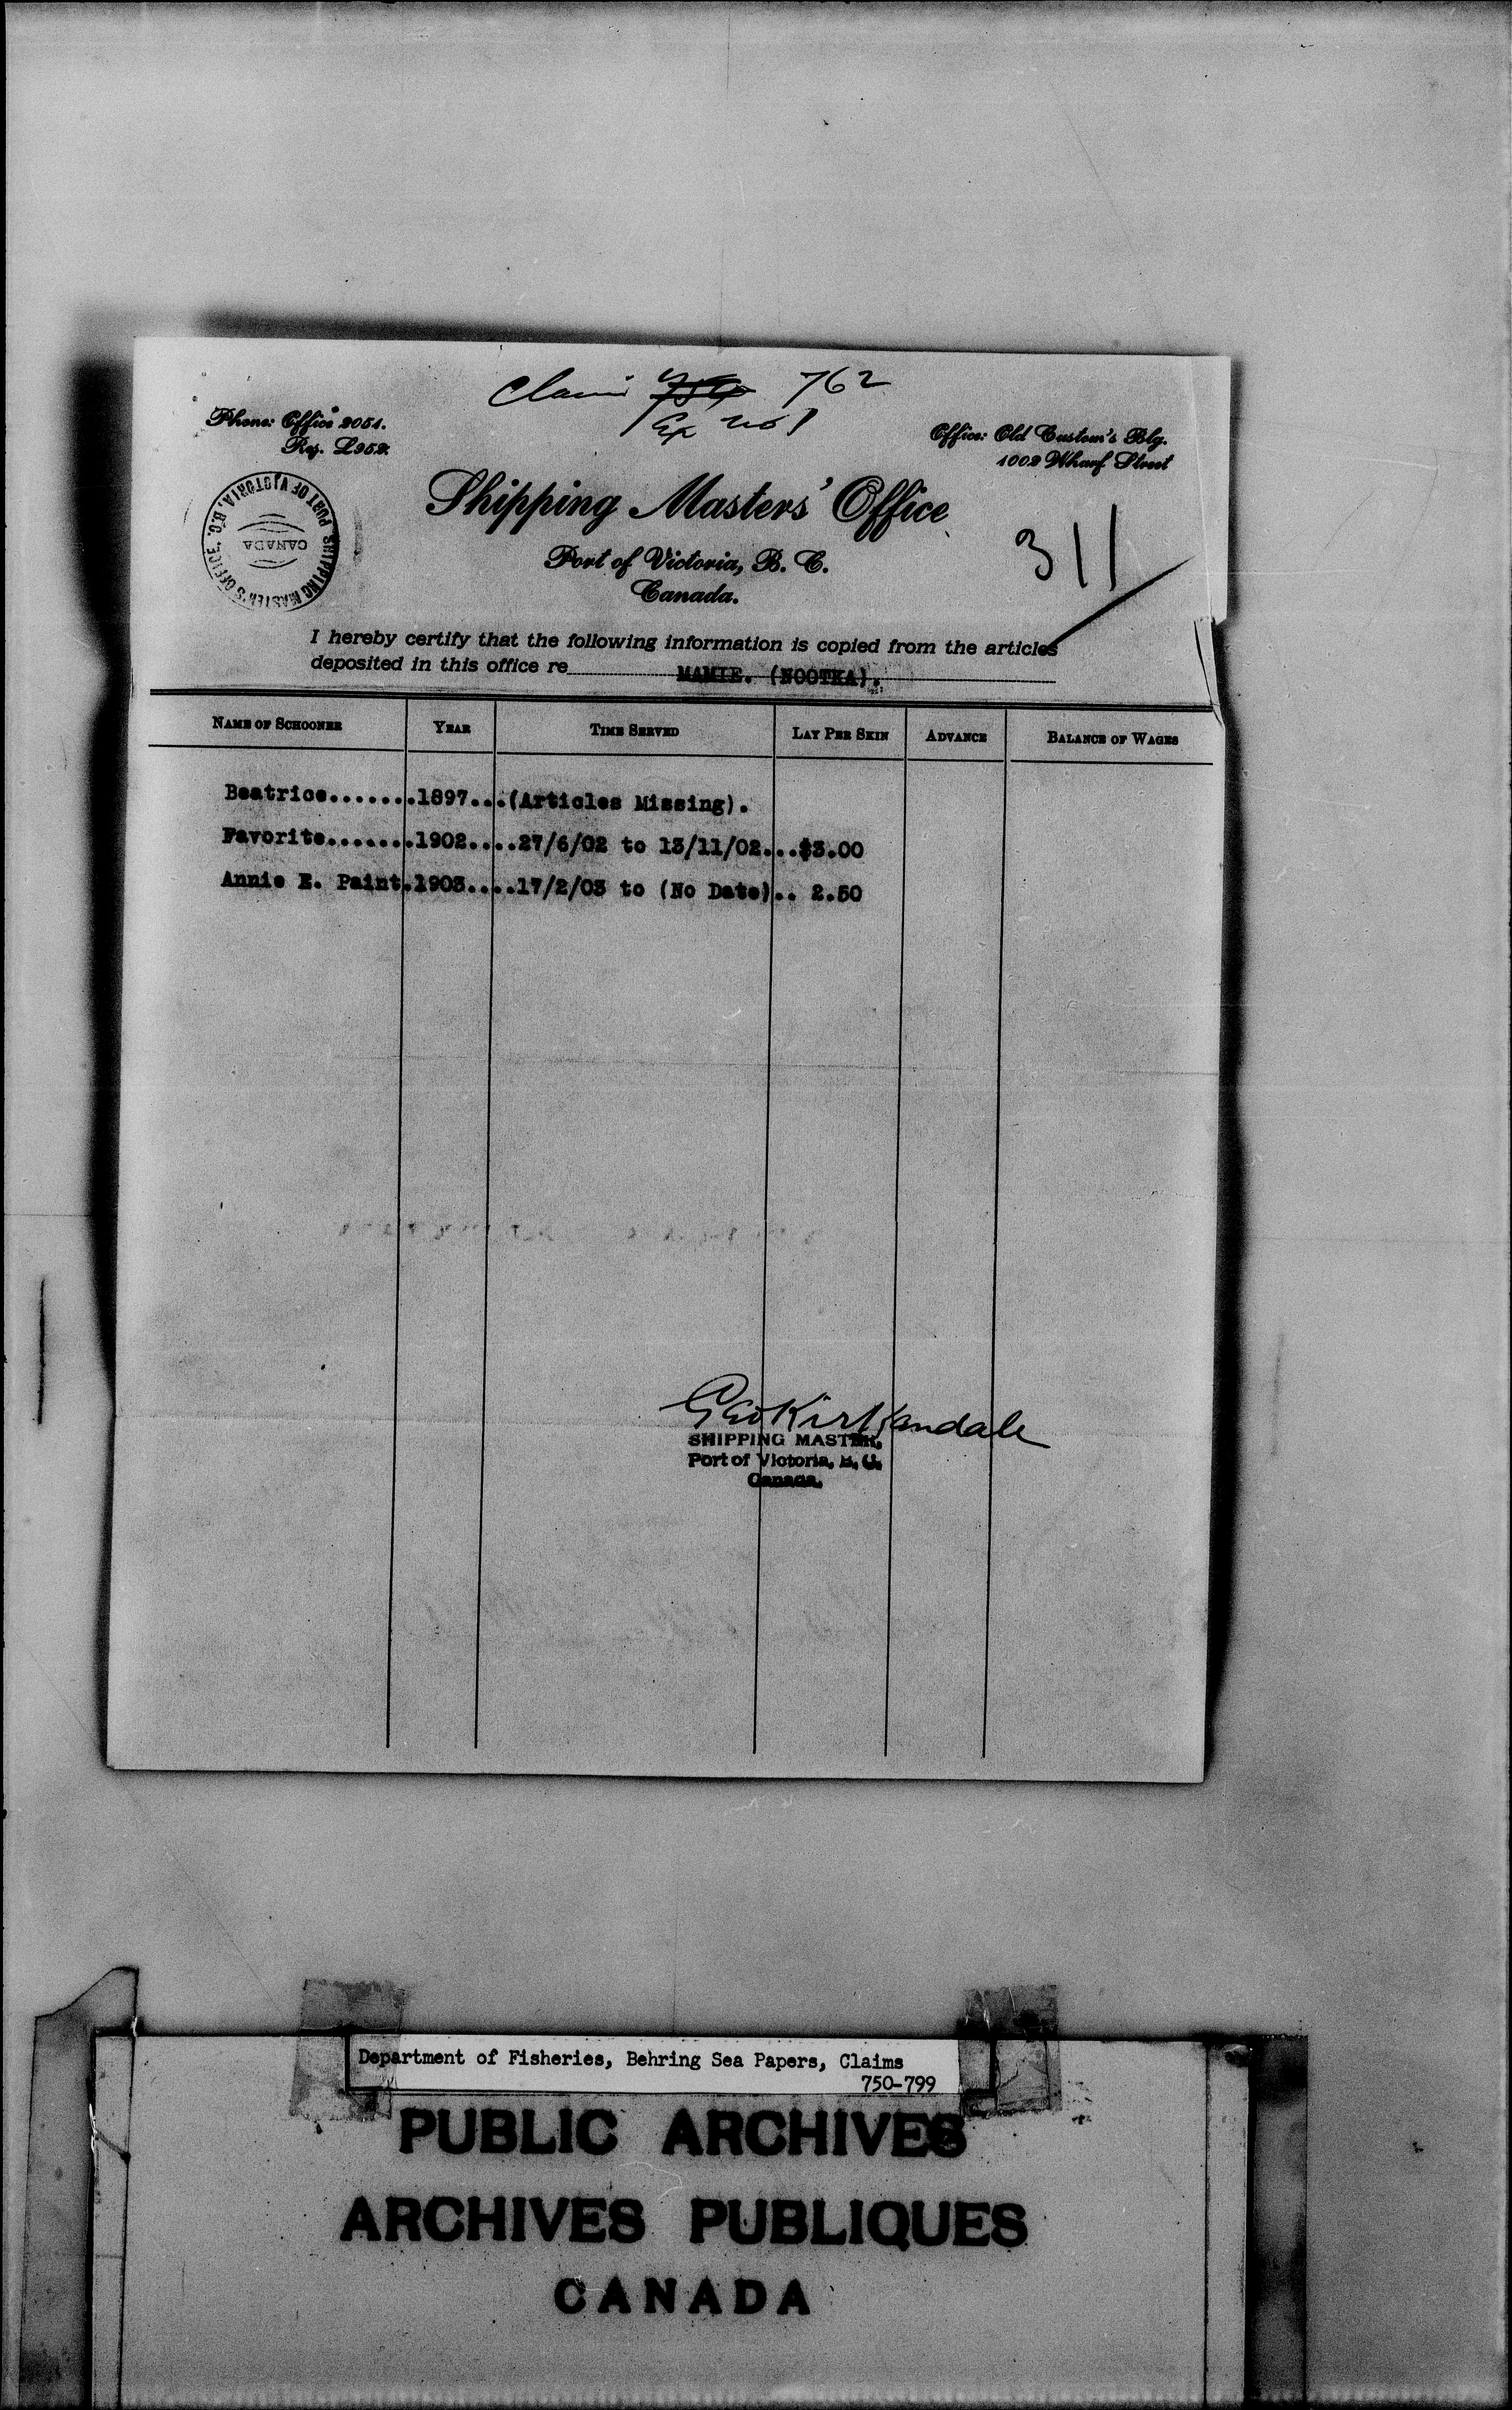 Claim 762
Ex no 1
Phone: Office 2051.
Res. L952.
Office: Old Custom's Blg.
1002 Wharf Street
SHIPPING MASTER'S OFFICE, PORT OF VICTORIA, B.C.
CANADA
Shipping Masters' Office
Port of Victoria, B. C.
Canada.
311
I hereby certify that the following information is copied from the articles
deposited in this office re MAMIE. (NOOTKA).
NAME OF SCHOONER YEAR TIME SERVED LAY PER SKIN ADVANCE BALANCE OF WAGES
Beatrice.......1897...(Articles Missing).
Favorite.......1902....27/6/02 to 13/11/02...$3.00
Annie E. Paint.1903....17/2/03 to (No Date).. 2.50
Geo Kirkendale
SHIPPING MASTER,
Port of Victoria, B. C.
Canada.
Department of Fisheries, Behring Sea Papers, Claims
750-799
PUBLIC ARCHIVES
ARCHIVES PUBLIQUES
CANADA